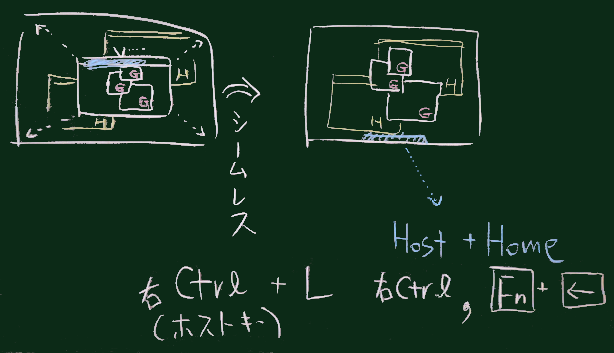 V....
G
H
G
G
H
シームレス
G
G
H
G
H
Host + Home
右Ctrl + L
(ホストキー)
右Ctrl, Fn + ←